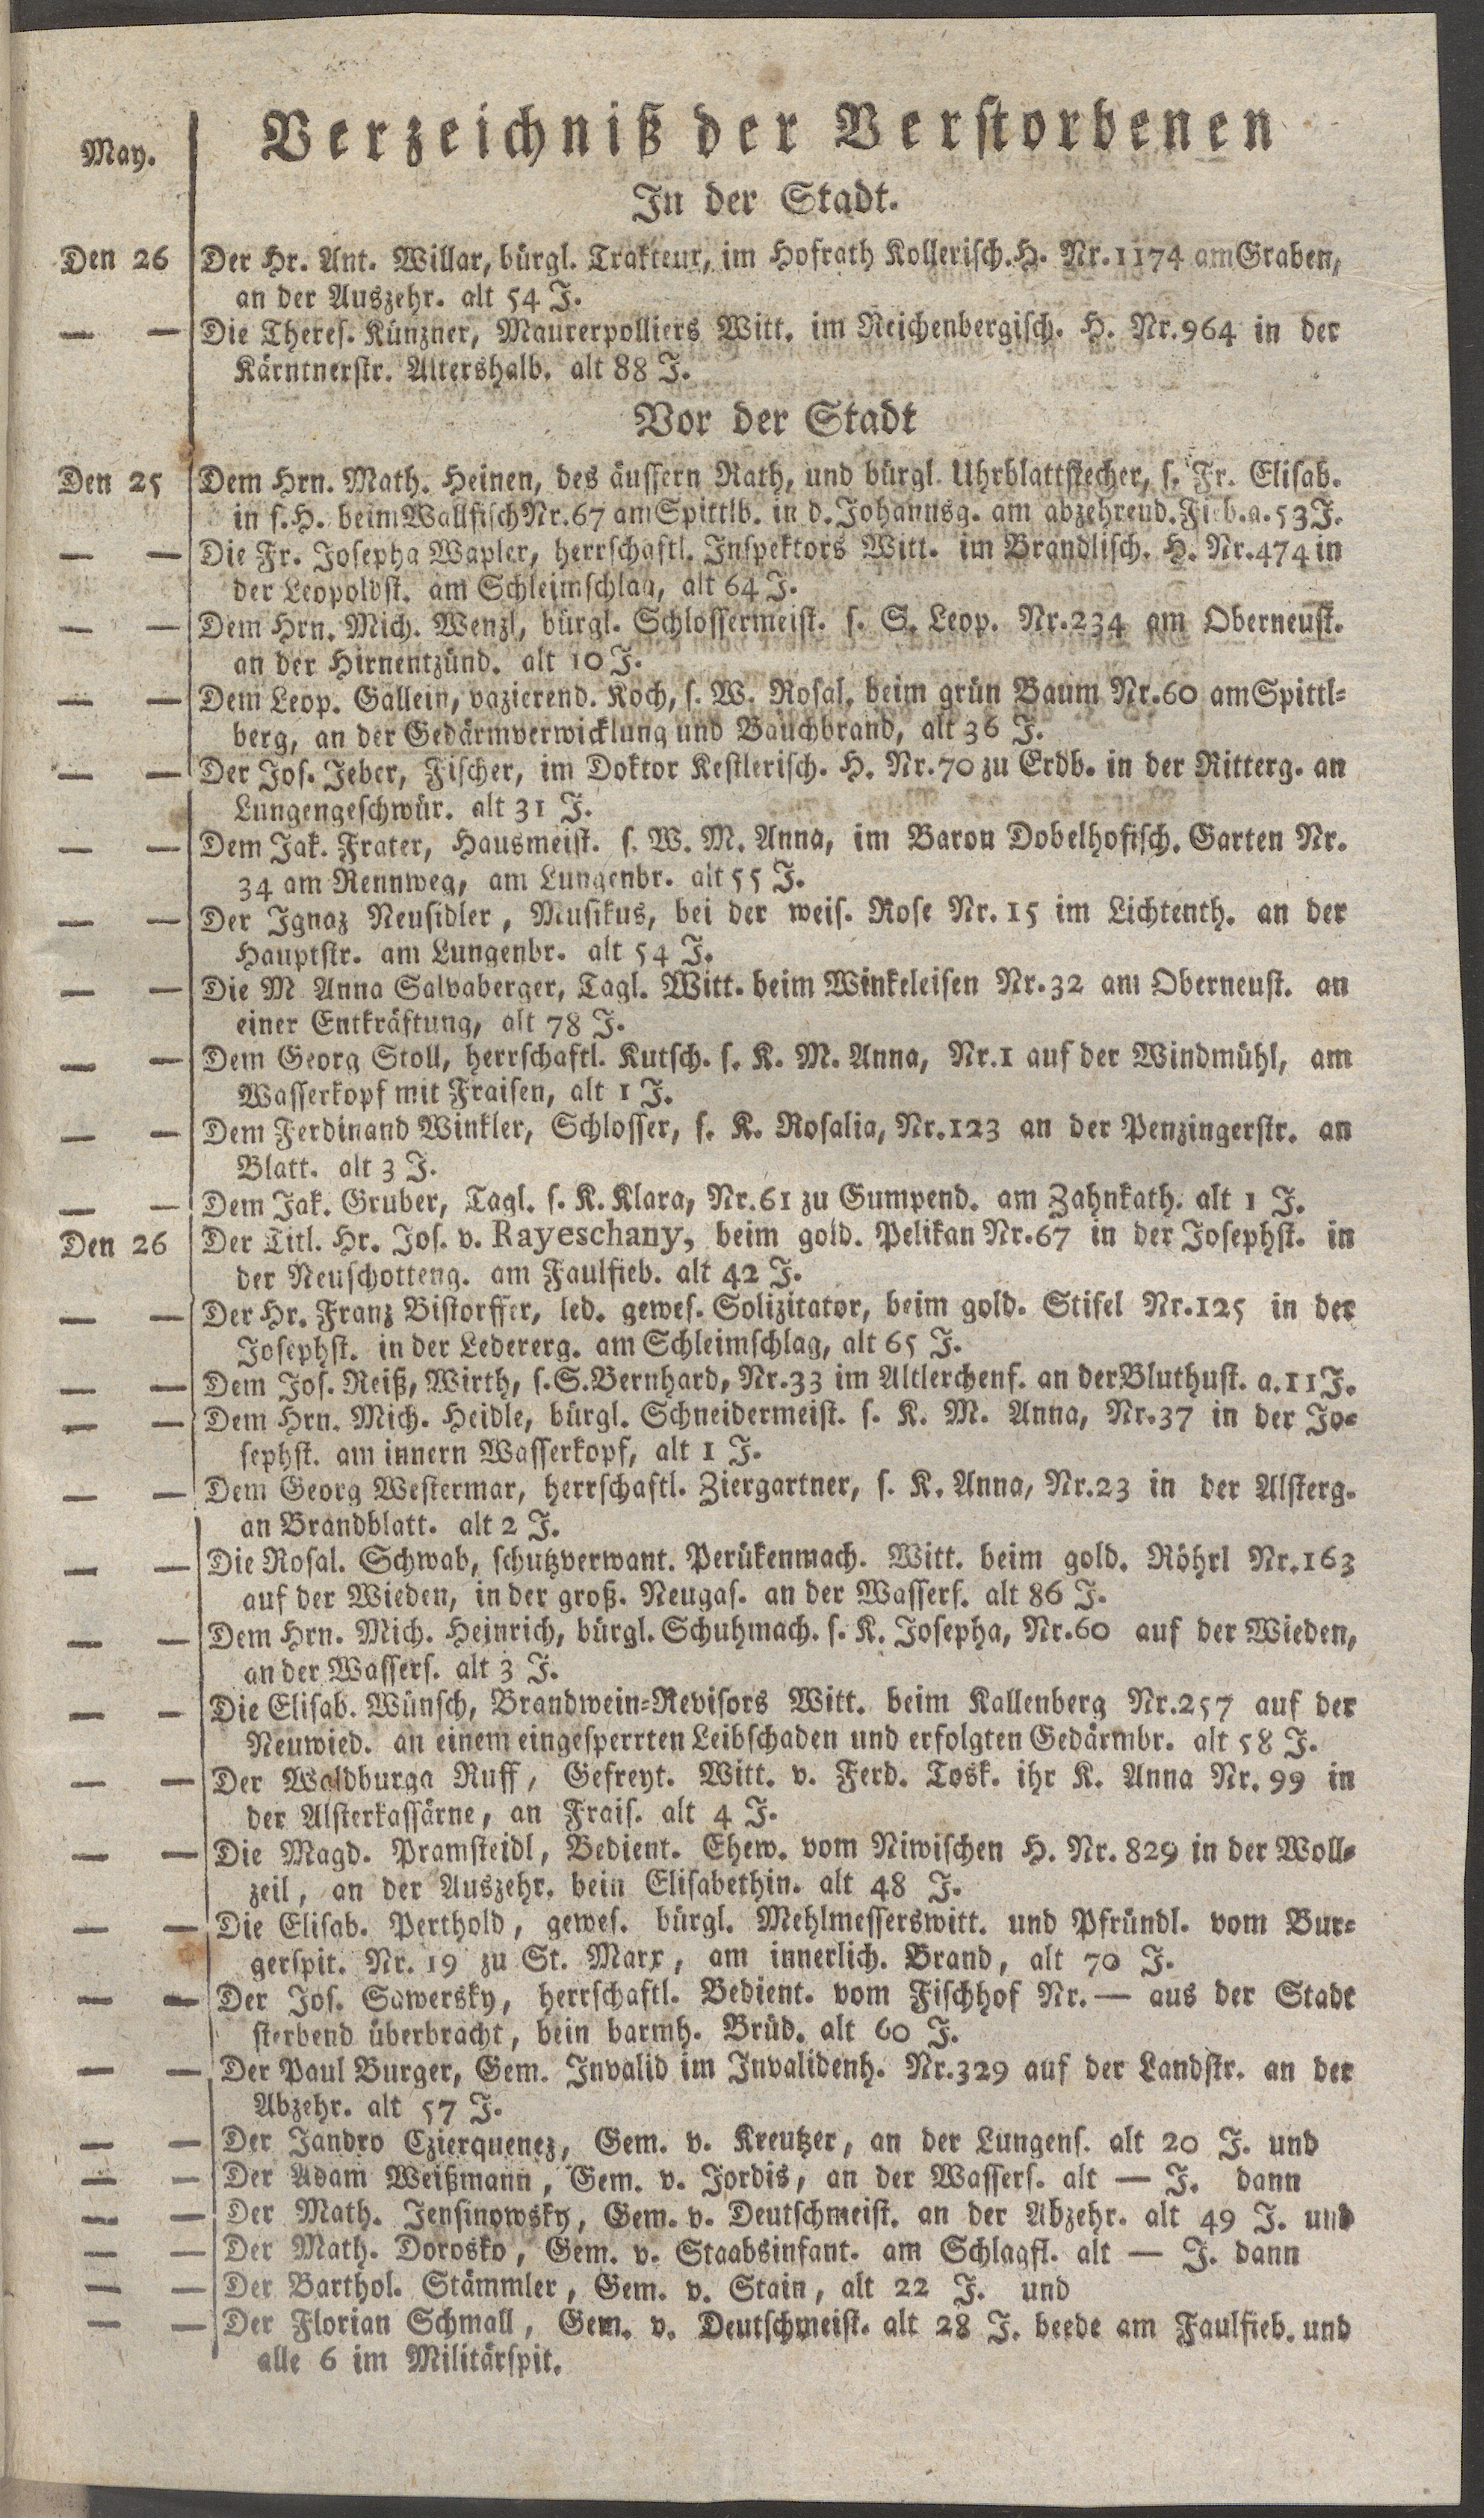 May.
Verzeichniß der Verstorbenen
In der Stadt.
Den 26 Der Hr. Ant. Willar, bürgl. Trakteur, im Hofrath Kollerisch. H. Nr. 1174 am Graben,
an der Auszehr. alt 54 J.
— — Die Theres. Künzner, Maurerpolliers Witt. im Reichenbergisch. H. Nr. 964 in der
Kärntnerstr. Altershalb. alt 88 J.
Vor der Stadt
Den 25 Dem Hrn. Math. Heinen, des äussern Rath, und bürgl. Uhrblattstecher, s. Fr. Elisab.
in s. H. beim Wallfisch Nr. 67 am Spittlb. in d. Johannsg. am abzehrend. Fieb. a. 53 J.
— — Die Fr. Josepha Wapler, herrschaftl. Inspektors Witt. im Brandlisch. H. Nr. 474 in
der Leopoldst. am Schleimschlag, alt 64 J.
— — Dem Hrn. Mich. Wenzl, bürgl. Schlossermeist. s. S. Leop. Nr. 234 am Oberneust.
an der Hirnentzünd. alt 10 J.
— — Dem Leop. Gallein, vazierend. Koch, s. W. Rosal. beim grün Baum Nr. 60 am Spittl-
berg, an der Gedärmverwicklung und Bauchbrand, alt 36 J.
— — Der Jos. Jeber, Fischer, im Doktor Kestlerisch. H. Nr. 70 zu Erdb. in der Ritterg. an
Lungengeschwür. alt 31 J.
— — Dem Jak. Frater, Hausmeist. s. W. M. Anna, im Baron Dobelhofisch. Garten Nr.
34 am Rennweg, am Lungenbr. alt 55 J.
— — Der Ignaz Neusidler, Musikus, bei der weis. Rose Nr. 15 im Lichtenth. an der
Hauptstr. am Lungenbr. alt 54 J.
— — Die M Anna Salvaberger, Tagl. Witt. beim Winkeleisen Nr. 32 am Oberneust. an
einer Entkräftung, alt 78 J.
— — Dem Georg Stoll, herrschaftl. Kutsch. s. K. M. Anna, Nr. 1 auf der Windmühl, am
Wasserkopf mit Fraisen, alt 1 J.
— — Dem Ferdinand Winkler, Schlosser, s. K. Rosalia, Nr. 123 an der Penzingerstr. an
Blatt. alt 3 J.
— — Dem Jak. Gruber, Tagl. s. K. Klara, Nr. 61 zu Gumpend. am Zahnkath. alt 1 J.
Den 26 Der Titl. Hr. Jos. v. Rayeschany, beim gold. Pelikan Nr. 67 in der Josephst. in
der Neuschotteng. am Faulfieb. alt 42 J.
— — Der Hr. Franz Bistorffer, led. gewes. Solizitator, beim gold. Stifel Nr. 125 in der
Josephst. in der Ledererg. am Schleimschlag, alt 65 J.
— — Dem Jos. Reiß, Wirth, s. S. Bernhard, Nr. 33 im Altlerchenf. an der Bluthust. a. 11 J.
— — Dem Hrn. Mich. Heidle, bürgl. Schneidermeist. s. K. M. Anna, Nr. 37 in der Jo-
sephst. am innern Wasserkopf, alt 1 J.
— — Dem Georg Westermar, herrschaftl. Ziergartner, s. K. Anna, Nr. 23 in der Alsterg.
an Brandblatt. alt 2 J.
— — Die Rosal. Schwab, schutzverwant. Perükenmach. Witt. beim gold. Röhrl Nr. 163
auf der Wieden, in der groß. Neugas. an der Wassers. alt 86 J.
— — Dem Hrn. Mich. Heinrich, bürgl. Schuhmach. s. K. Josepha, Nr. 60 auf der Wieden,
an der Wassers. alt 3 J.
— — Die Elisab. Wünsch, Brandwein-Revisors Witt. beim Kallenberg Nr. 257 auf der
Neuwied. an einem eingesperrten Leibschaden und erfolgten Gedärmbr. alt 58 J.
— — Der Waldburga Ruff, Gefreyt. Witt. v. Ferd. Tosk. ihr K. Anna Nr. 99 in
der Alsterkassärne, an Frais. alt 4 J.
— — Die Magd. Pramsteidl, Bedient. Ehew. vom Niwischen H. Nr. 829 in der Woll-
zeil, an der Auszehr. bein Elisabethin. alt 48 J.
— — Die Elisab. Perthold, gewes. bürgl. Mehlmesserswitt. und Pfründl. vom Bur-
gerspit. Nr. 19 zu St. Marx, am innerlich. Brand, alt 70 J.
— — Der Jos. Sawersky, herrschaftl. Bedient. vom Fischhof Nr. — aus der Stadt
sterbend überbracht, bein barmh. Brüd. alt 60 J.
— — Der Paul Burger, Gem. Invalid im Invalidenh. Nr. 329 auf der Landstr. an der
Abzehr. alt 57 J.
— — Der Jandro Czierquenez, Gem. v. Kreutzer, an der Lungens. alt 20 J. und
— — Der Adam Weißmann, Gem. v. Jordis, an der Wassers. alt — J. dann
— — Der Math. Jensinowsky, Gem. v. Deutschmeist. an der Abzehr. alt 49 J. und
— — Der Math. Dorosko, Gem. v. Staabsinfant. am Schlagfl. alt — J. dann
— — Der Barthol. Stämmler, Gem. v. Stain, alt 22 J. und
— — Der Florian Schmall, Gem. v. Deutschmeist. alt 28 J. beede am Faulfieb. und
alle 6 im Militärspit.